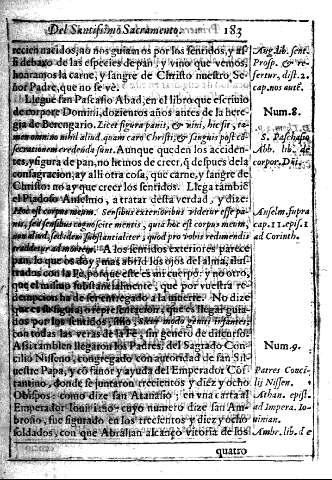 Del Santissimo Sacramento. 183
recien nacidos, no nos guiamos por los sentidos, y assi
debaxo de las especies de pan, y vino que vemos,
honramos la carne, y sangre de Christo nuestro Señor
Padre, que no se vè.
Llegue san Pascasio Abad, en el libro que escriuio
de corpore Domini, dozientos años antes de la heregia
de Berengario. Licet figura panis, & vini, hic sit,
omnino nihil aliud, quam caro Christi, & sanguis post
consecrationem credenda sunt. Aunque queden los accidentes,
y figura de pan, no hemos de creer, q̃ despues de la
consagracion, ay alli otra cosa, que carne, y sangre de
Christo: no ay que creer los sentidos. Llega tambiẽ
el Piadoso Anselmo, a tratar desta verdad, y dize:
Hoc est corpus meum. Sensibus exterioribus videtur esse panis,
sed sensibus cognoscite mentis, quia hoc est corpus meum,
non aliud, sed idem substantialiter, quod pro vobis redimendis
tradetur ad mortem. A los sentidos exteriores parece
pan, lo que os doy; mas abrid los ojos del alma,
con la Fè, porque este es mi cuerpo: y no otro,
que el mismo substancialmente, que por vuestra
redempcion ha de ser entregado a la muerte. No dize
que es figura, o representacion, que es llegar guiados
por los sentidos,
con todas las veras de la Fè, sin genero de disenso.
Assi tambien llegaron los Padres, del Sagrado Concilio
Nisseno, congregado con autoridad de san Siluestre
Papa, y cõ fauor y ayuda del Emperador Cõstantino,
donde se juntaron trecientos y diez y ocho
Obispos: como dize san Atanasio; en vna carta al
Emperador Iouiniano: cuyo numero dize san Ambrosio,
fue figurado en los trecientos y diez y ocho
soldados, con que Abrahan alcanço vitoria de los
quatro
Aug. lib. sent.
Prosp. & refertur,
dist. 2.
cap. nos autẽ.
Num. 8.
S. Paschasio
Abb. lib. de
corpor. Dñi.
Anselm. supra
cap. 11. epis. 1
ad Corinth.
Num. 9.
Patres Concilij
Nissen.
Athan. epist.
ad Impera. Iouinianum
Ambr. lib. de